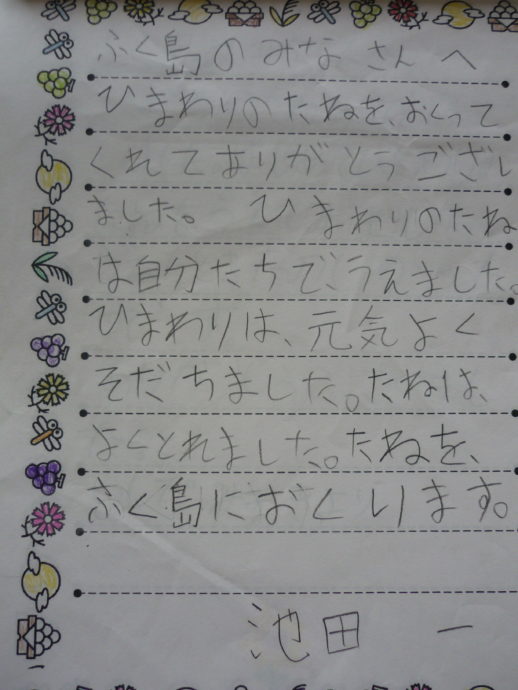 ふく島のみなさんへ
ひまわりのたねを、おくって
くれてありがとうござい
ました。 ひまわりのたね
は自分たちで、うえました。
ひまわりは、元気よく
そだちました。たねは、
よくとれました。たねを、
ふく島におくります。
池田 一